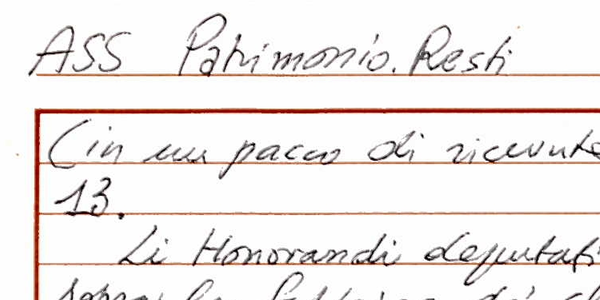 ASS Patrimonio. Resti
(in un pacco di ricevute
13.
Li Honorandi deputati
sopra la